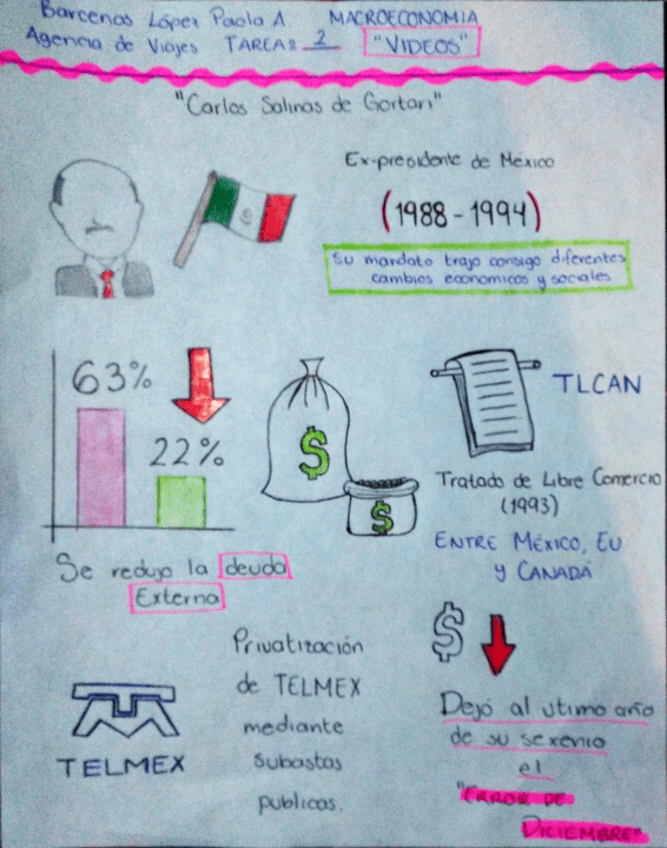 Barcenas López Paola A. MACROECONOMIA
Agencia de Viajes TAREAS 2 "VIDEOS"
"Carlos Salinas de Gortari"
Ex-presidente de México
(1988-1994)
Su mandato trajo consigo diferentes
cambios economicos y sociales
63%
22%
Se redujo la deuda
Externa
$
$
TLCAN
Tratado de Libre Comercio
(1993)
ENTRE MÉXICO, EU
Y CANADÁ
TELMEX
Privatización
de TELMEX
mediante
subastas
publicas.
$
Dejó al utimo año
de su sexenio
el
"ERROR DE
DICIEMBRE"